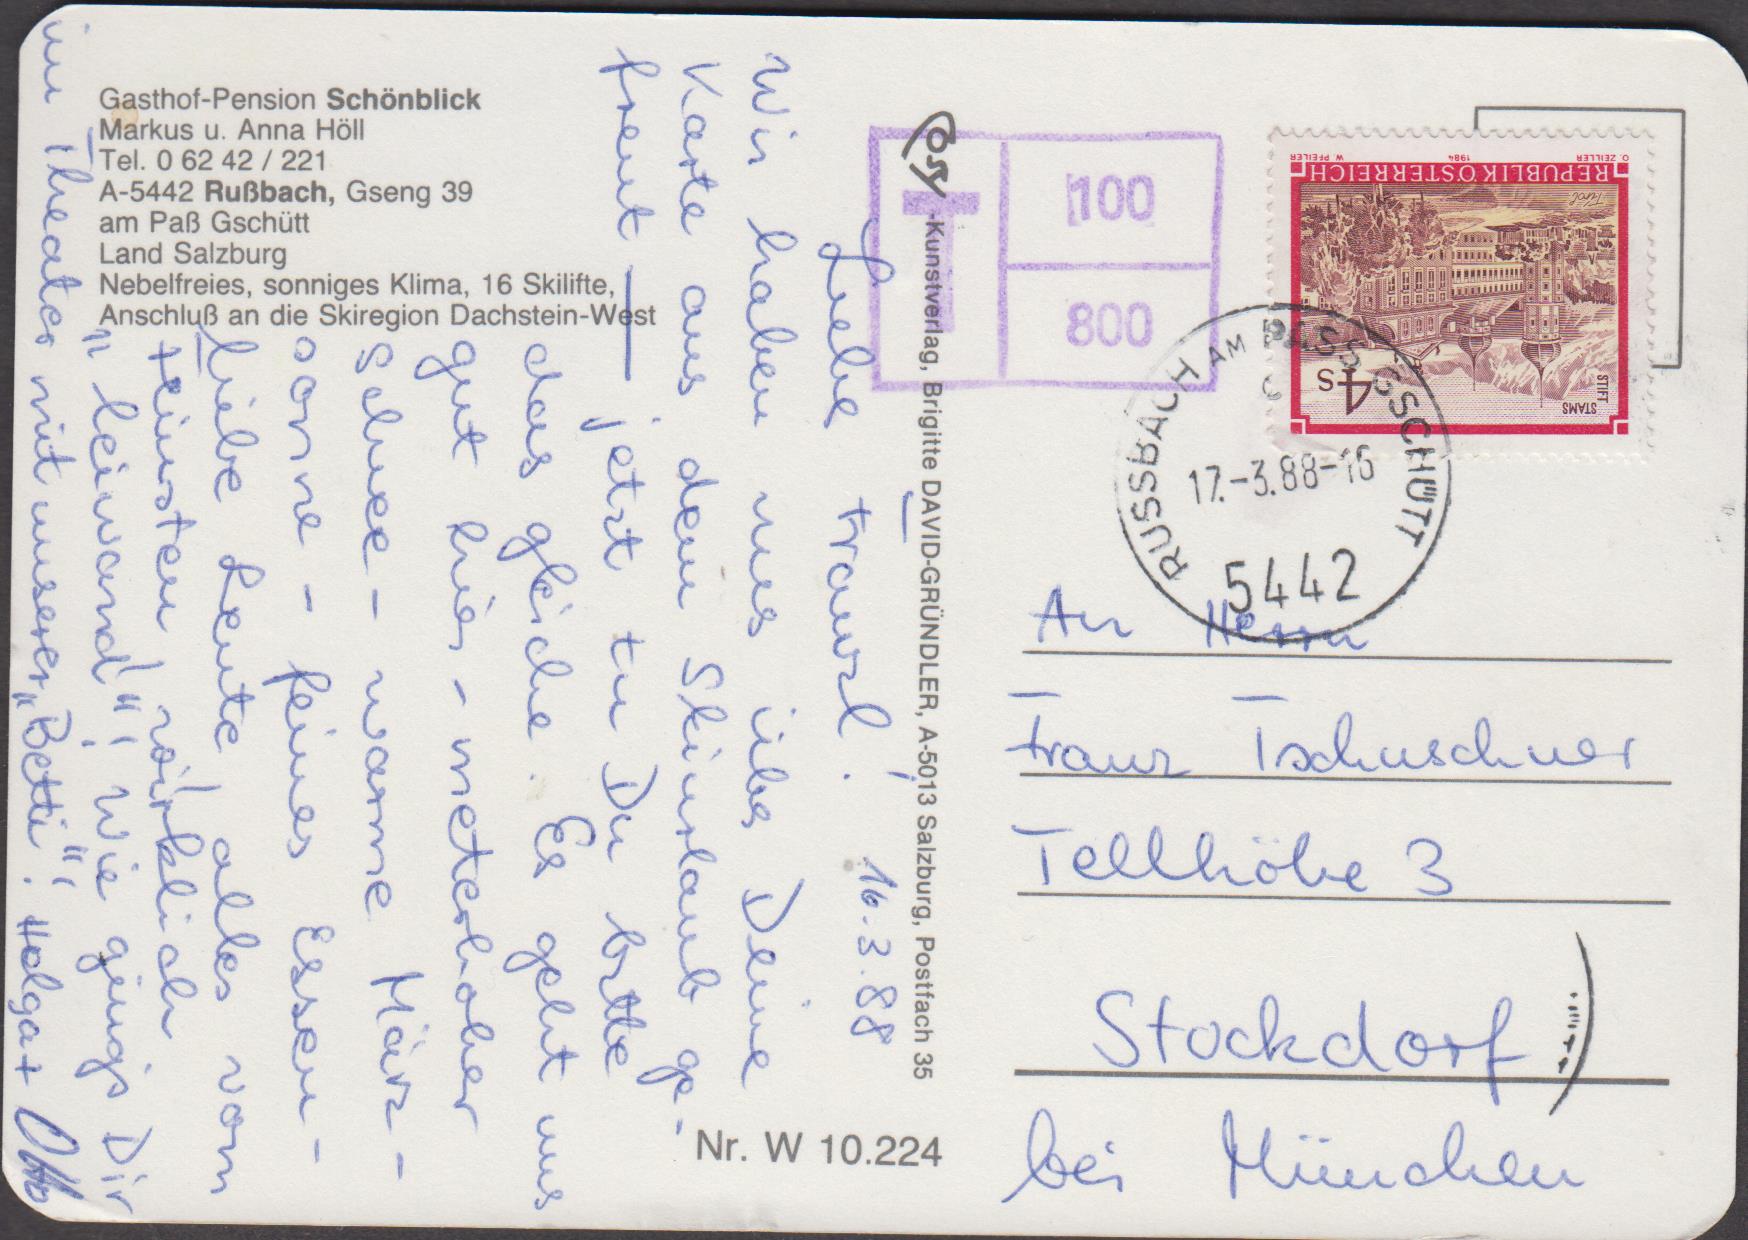 Gasthof-Pension Schönblick
Markus u. Anna Höll
Tel. 0 62 42 / 221
A-5442 Rußbach, Gseng 39
am Paß Gschütt
Land Salzburg
Nebelfreies, sonniges Klima, 16 Skilifte,
Anschluß an die Skiregion Dachstein-West
16.3.88
Lieber Franzl!
Wir haben uns über Deine
Karte aus dem Skiurlaub ge-
freut – jetzt tu Du bitte
das gleiche. Es geht uns
gut hier – meterhoher
Schnee – warme März-
sonne – feines Essen –
liebe Leute, alles vom
Feinsten, wirklich
"leiwand"! Wie ging's Dir
im Theater mit unserer "Betti". Helga + Otto
Cosy-Kunstverlag, Brigitte DAVID-GRÜNDLER, A-5013 Salzburg, Postfach 35
Nr. W 10.224
T
100
800
O. ZEILLER 1984 W. PFEILER
REPUBLIK ÖSTERREICH
Tirol
4 S
STIFT
STAMS
RUSSBACH AM PASS GSCHÜTT
17.-3.88-16
5442
An Herrn
Franz Tschuschner
Tellhöhe 3
Stockdorf
bei München